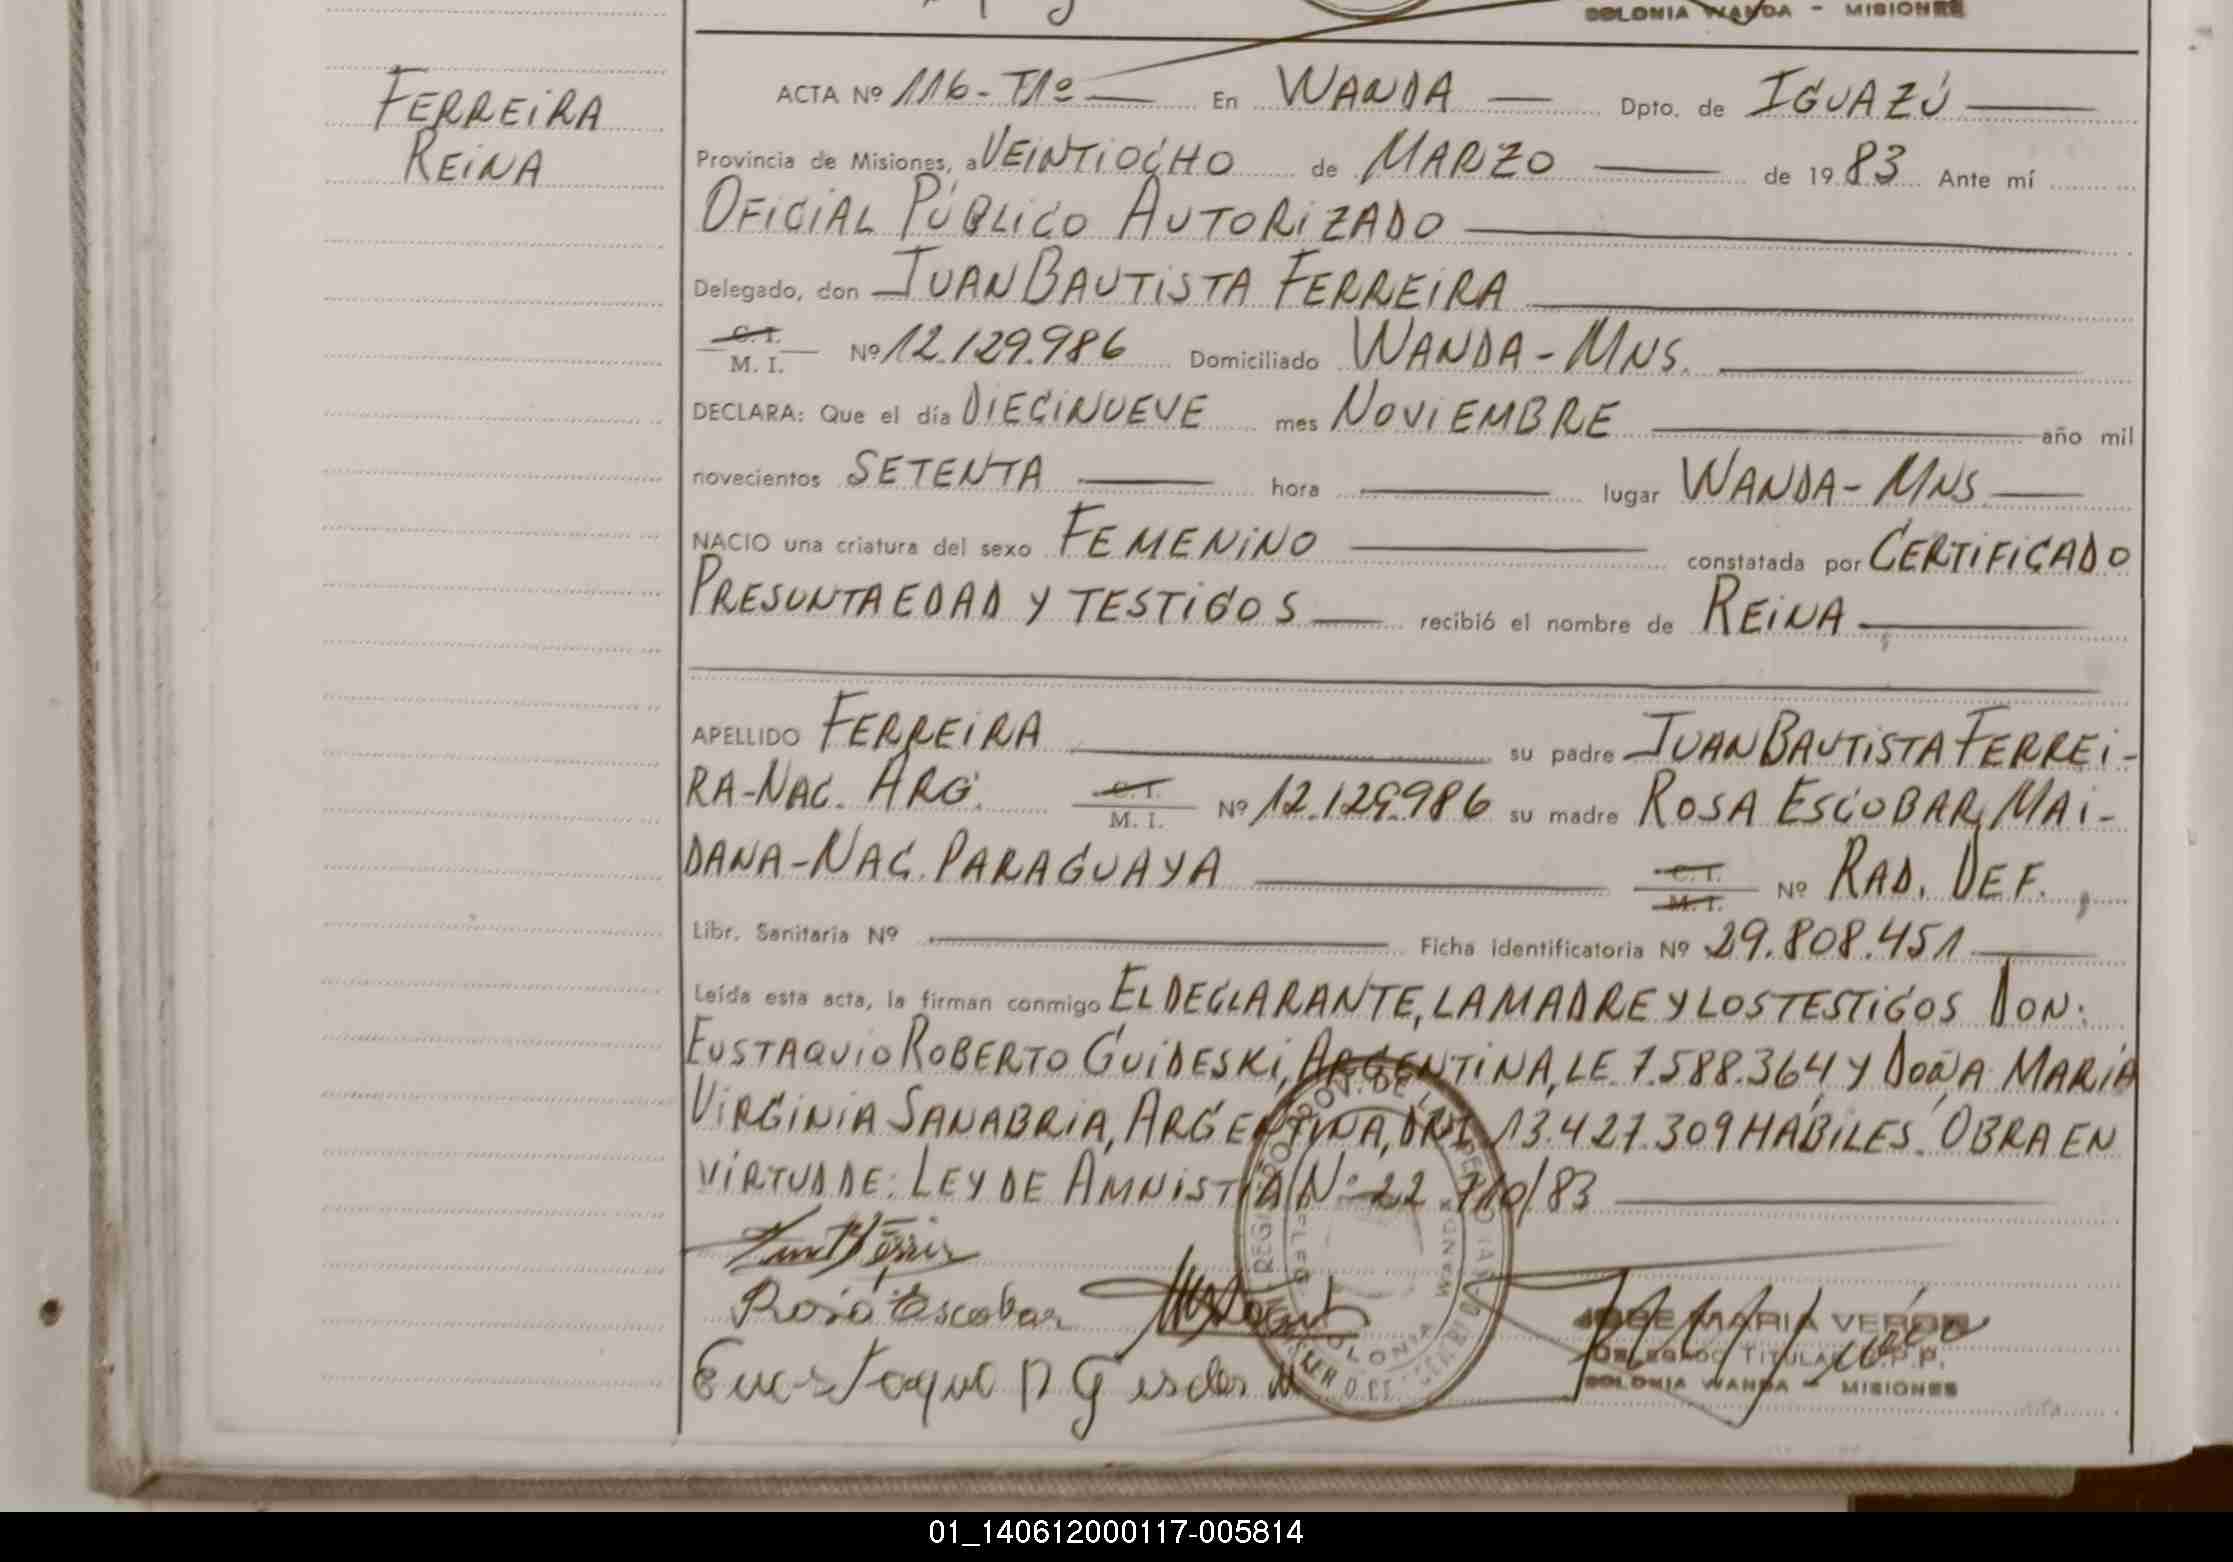 COLONIA WANDA - MISIONES
FERREIRA
REINA
ACTA Nº 116-T1º En WANDA Dpto. de IGUAZÚ
Provincia de Misiones, a VEINTIOCHO de MARZO de 19 83 Ante mí
OFICIAL PÚBLICO AUTORIZADO
Delegado, don JUAN BAUTISTA FERREIRA
C.I.
M. I. Nº 12.129.986 Domiciliado WANDA-MNS.
DECLARA: Que el día DIECINUEVE mes NOVIEMBRE año mil
novecientos SETENTA hora lugar WANDA-MNS
NACIO una criatura del sexo FEMENINO constatada por CERTIFICADO
PRESUNTA EDAD Y TESTIGOS recibió el nombre de REINA
APELLIDO FERREIRA su padre JUAN BAUTISTA FERREI-
RA-NAC. ARG. C.I. M. I. Nº 12.129.986 su madre ROSA ESCOBAR, MAI-
DANA-NAC. PARAGUAYA C.I. M.I. Nº RAD. DEF.,
Libr. Sanitaria Nº Ficha identificatoria Nº 29.808.451
Leída esta acta, la firman conmigo EL DECLARANTE, LA MADRE Y LOS TESTIGOS DON:
EUSTAQUIO ROBERTO GUIDESKI, ARGENTINA, LE. 7.588.364, Y DOÑA MARIA
VIRGINIA SANABRIA, ARGENTINA, DNI. 13.427.309 HÁBILES. OBRA EN
VIRTUD DE: LEY DE AMNISTIA Nº 22 710/83
Rosa Escobar
JOSE MARIA VERON
DELEGADO TITULAR R.P.P.
COLONIA WANDA - MISIONES
01_140612000117-005814